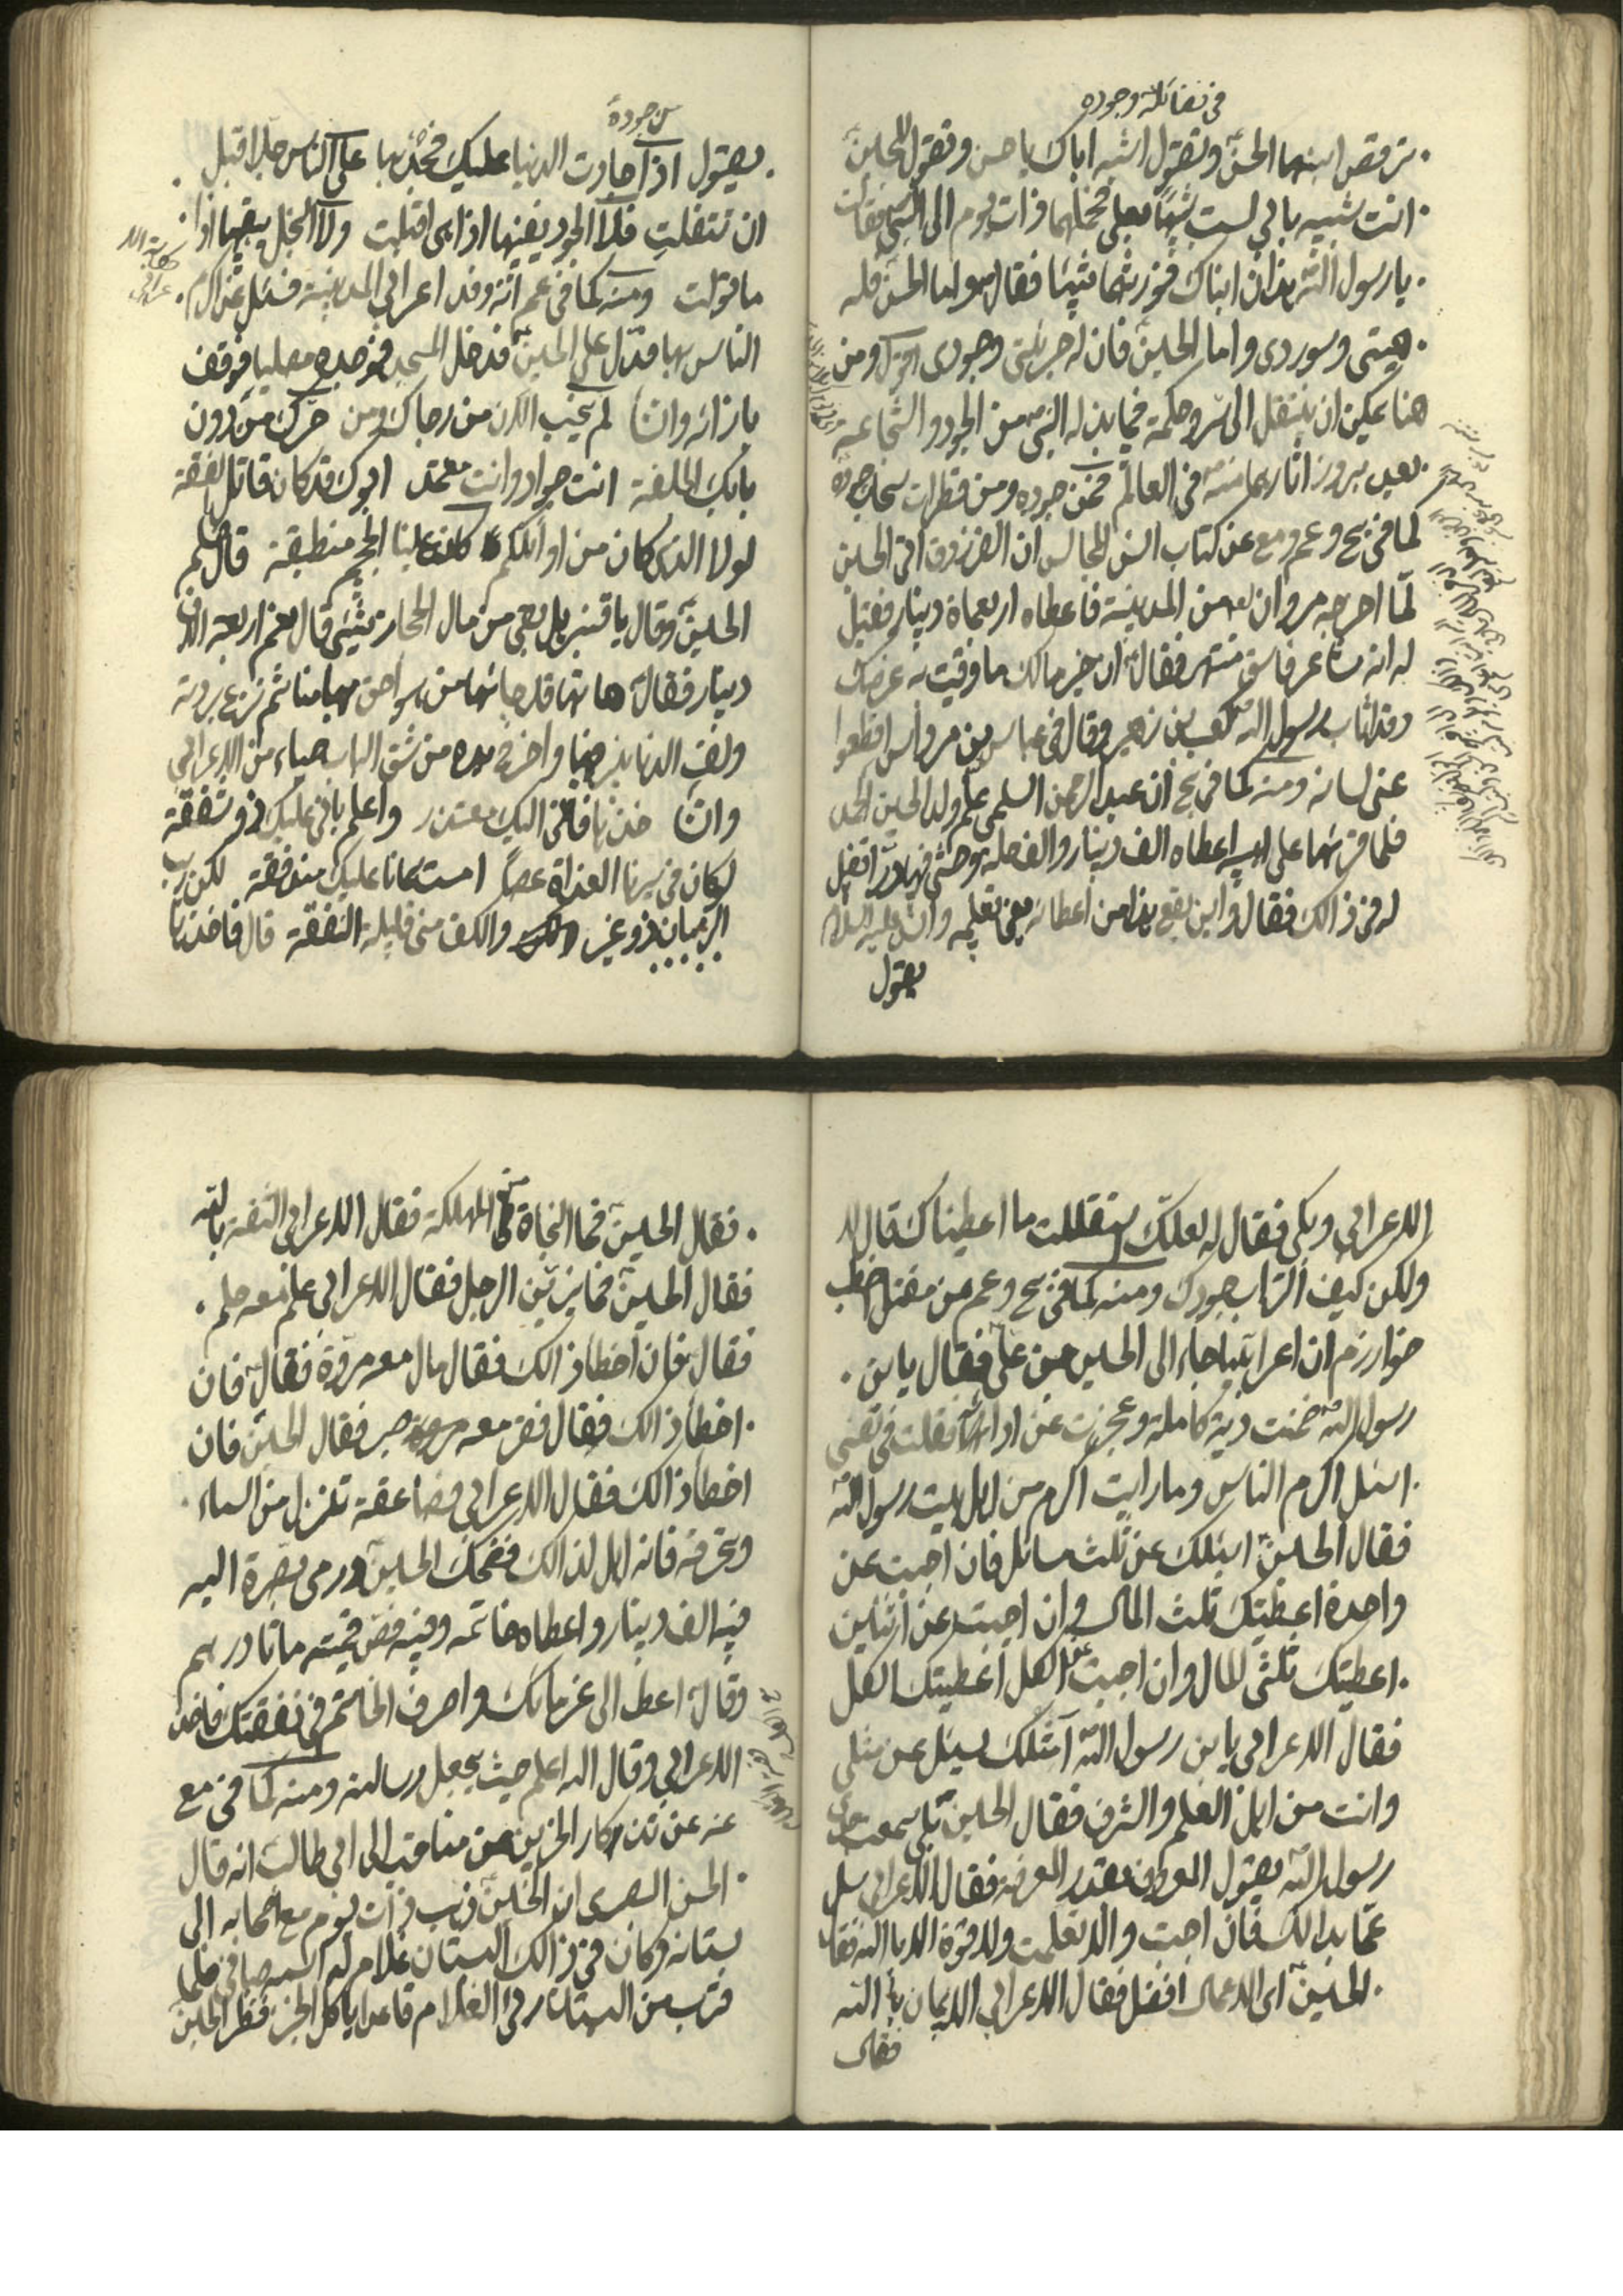 في فضائله وجوده
ترقص ابنها الحسن وتقول اشبه اباك يا حسن وتقول للحسين
انت شبيه بابي لست شبيها بعلي فحملهما ذات يوم الى النبي فقالت
يا رسول الله هذان ابناك فورثهما شيئا فقال هو اما الحسن فله
هيبتي وسوددي واما الحسين فان له جرئتي وجودي اقول ومن
هنا يمكن ان ينتقل الى سر وحكمة فيما بذله النبي من الجود والشجاعة
بعين بروز اثارهما منه في العالم فمن جوده ومن قطرات سحاب جوده
كما في بح وعم ومع عن كتاب انس المجالس ان الفرزدق اتى الحسين
لما اخرجه مروان من المدينة فاعطاه اربعماة دينار فقيل
له انه شاعر فاسق منتهر فقال ان خير مالك ما وقيت به عرضك
وقد اثاب رسول الله كعب بن زهير وقال في عباس بن مرداس اقطعوا
عني لسانه ومنه كما في بح ان عبد الرحمن السلمي علم ولد الحسين الحمد
فلما قرئها على ابيه اعطاه الف دينار والف حلة وحشى فاه درا فقيل
له في ذالك فقال واين يقع هذا من اعطائه يعني تعليمه وانشد عليه السلام
يقول
من جوده
يقول اذا جادت الدنيا عليك فجد بها على الناس طرا قبل
ان تتفلت فلا الجود يفنيها اذا هي اقبلت ولا البخل يبقيها اذا
ما تولت ومنه كما في عم انه وفد اعرابي المدينة فسئل عن اكرم
الناس بها فدل على الحسين فدخل المسجد فوجده مصليا فوقف
بازائه وانشا لم يخب الان من رجاك ومن حرك من دون
بابك الحلقة انت جواد وانت معتمد ابوك قد كان قاتل الفسقة
لولا الذي كان من اوائلكم كانت علينا الجحيم منطبقة قال فسلم
الحسين وقال يا قنبر هل بقي من مال الحجاز شيئ قال نعم اربعة الاف
دينار فقال هاتها قد جائها من هو احق بها منا ثم نزع بردته
ولف الدنانير فيها واخرج يده من شق الباب حياء من الاعرابي
وانشا خذها فاني اليك معتذر واعلم باني عليك ذو شفقة
لو كان في سيرنا الغداة عصا امست سمانا عليك مندفقة لكن ريب
الزمان ذو غير والكف مني قليلة النفقة قال فاخذها
الاعرابي وبكى فقال له لعلك استقللت ما اعطيناك قال لا
ولكن كيف التراب جودك ومنه كما في بح وعم عن مقتل اخطب
خوارزم ان اعرابيا جاء الى الحسين بن علي فقال يا بن
رسول الله ضمنت دية كاملة وعجزت عن ادائها فقلت في نفسي
اسئل اكرم الناس وما رايت اكرم من اهل بيت رسول الله
فقال الحسين اسئلك عن ثلث مسائل فان اجبت عن
واحدة اعطيتك ثلث المال وان اجبت عن اثنين
اعطيتك ثلثي المال وان اجبت عن الكل اعطيتك الكل
فقال الاعرابي يا بن رسول الله امثلك يسئل عن مثلي
وانت من اهل العلم والشرف فقال الحسين بلى سمعت جدي
رسول الله يقول المعروف بقدر المعرفة فقال الاعرابي سل
عما بدالك فان اجبت والا تعلمت ولا قوة الا بالله فقال
الحسين اي الاعمال افضل فقال الاعرابي الايمان بالله
فقال
فقال الحسين فما النجاة من المهلكة فقال الاعرابي الثقة بالله
فقال الحسين فما يزين الرجل فقال الاعرابي علم معه حلم
فقال فان اخطا ذالك فقال مال معه مروة فقال فان
اخطا ذالك فقال فقر معه صبر فقال الحسين فان
اخطا ذالك فقال الاعرابي فصاعقة تنزل من السماء
وتحرقه فانه اهل لذالك فضحك الحسين ورمى بصرة اليه
فيه الف دينار واعطاه خاتمه وفيه فص قيمته ماتا درهم
وقال اعط الى غرمائك واصرف الخاتم في نفقتك فاخذ
الاعرابي وقال الله اعلم حيث يجعل رسالته ومنه كما في مع
عنه عن تذكار الحزين من مناقب ال ابي طالب انه قال
الحسن البصري ان الحسين ذهب ذات يوم مع اصحابه الى
بستانه وكان في ذالك البستان غلام له اسمه صافي فلما
قرب من البستان رئ الغلام قاعدا ياكل الخبز فنظر الحسين